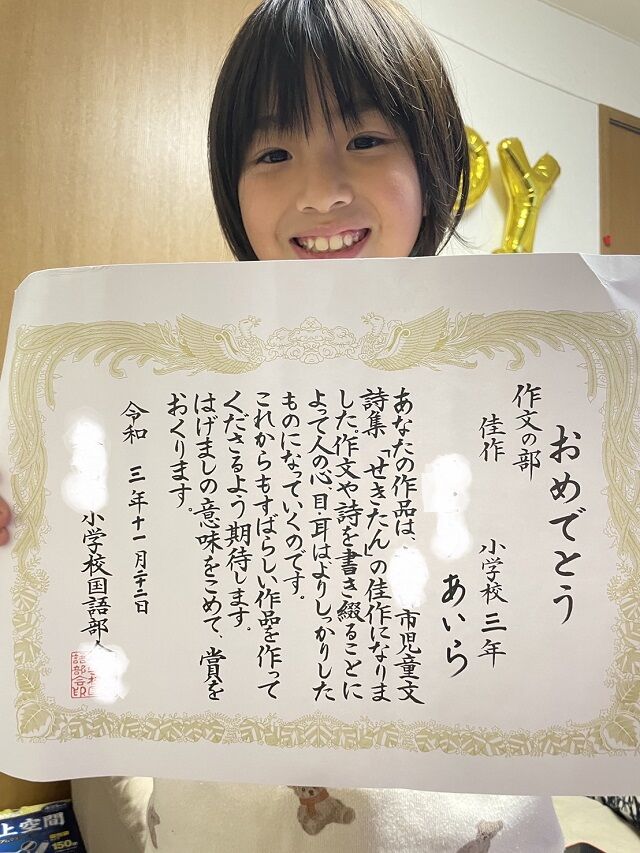 おめでとう
作文の部
佳作
小学校 三年
あいら
あなたの作品は、
市児童文
詩集「せきたん」の佳作になりま
した。作文や詩を書き綴ることに
よって人の心・目・耳はよりしっかりした
ものになっていくのです。
これからもすばらしい作品を作って
くださるよう期待します。
はげましの意味をこめて、賞を
おくります。
令和 三年十一月二十二日
小学校国語部会
上空間
150